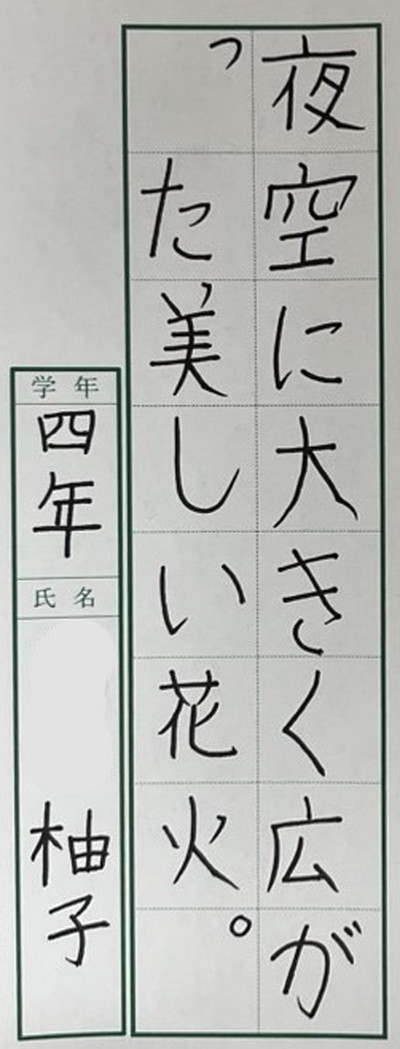 夜空に大きく広が
った美しい花火。
学年
四年
氏名
柚子